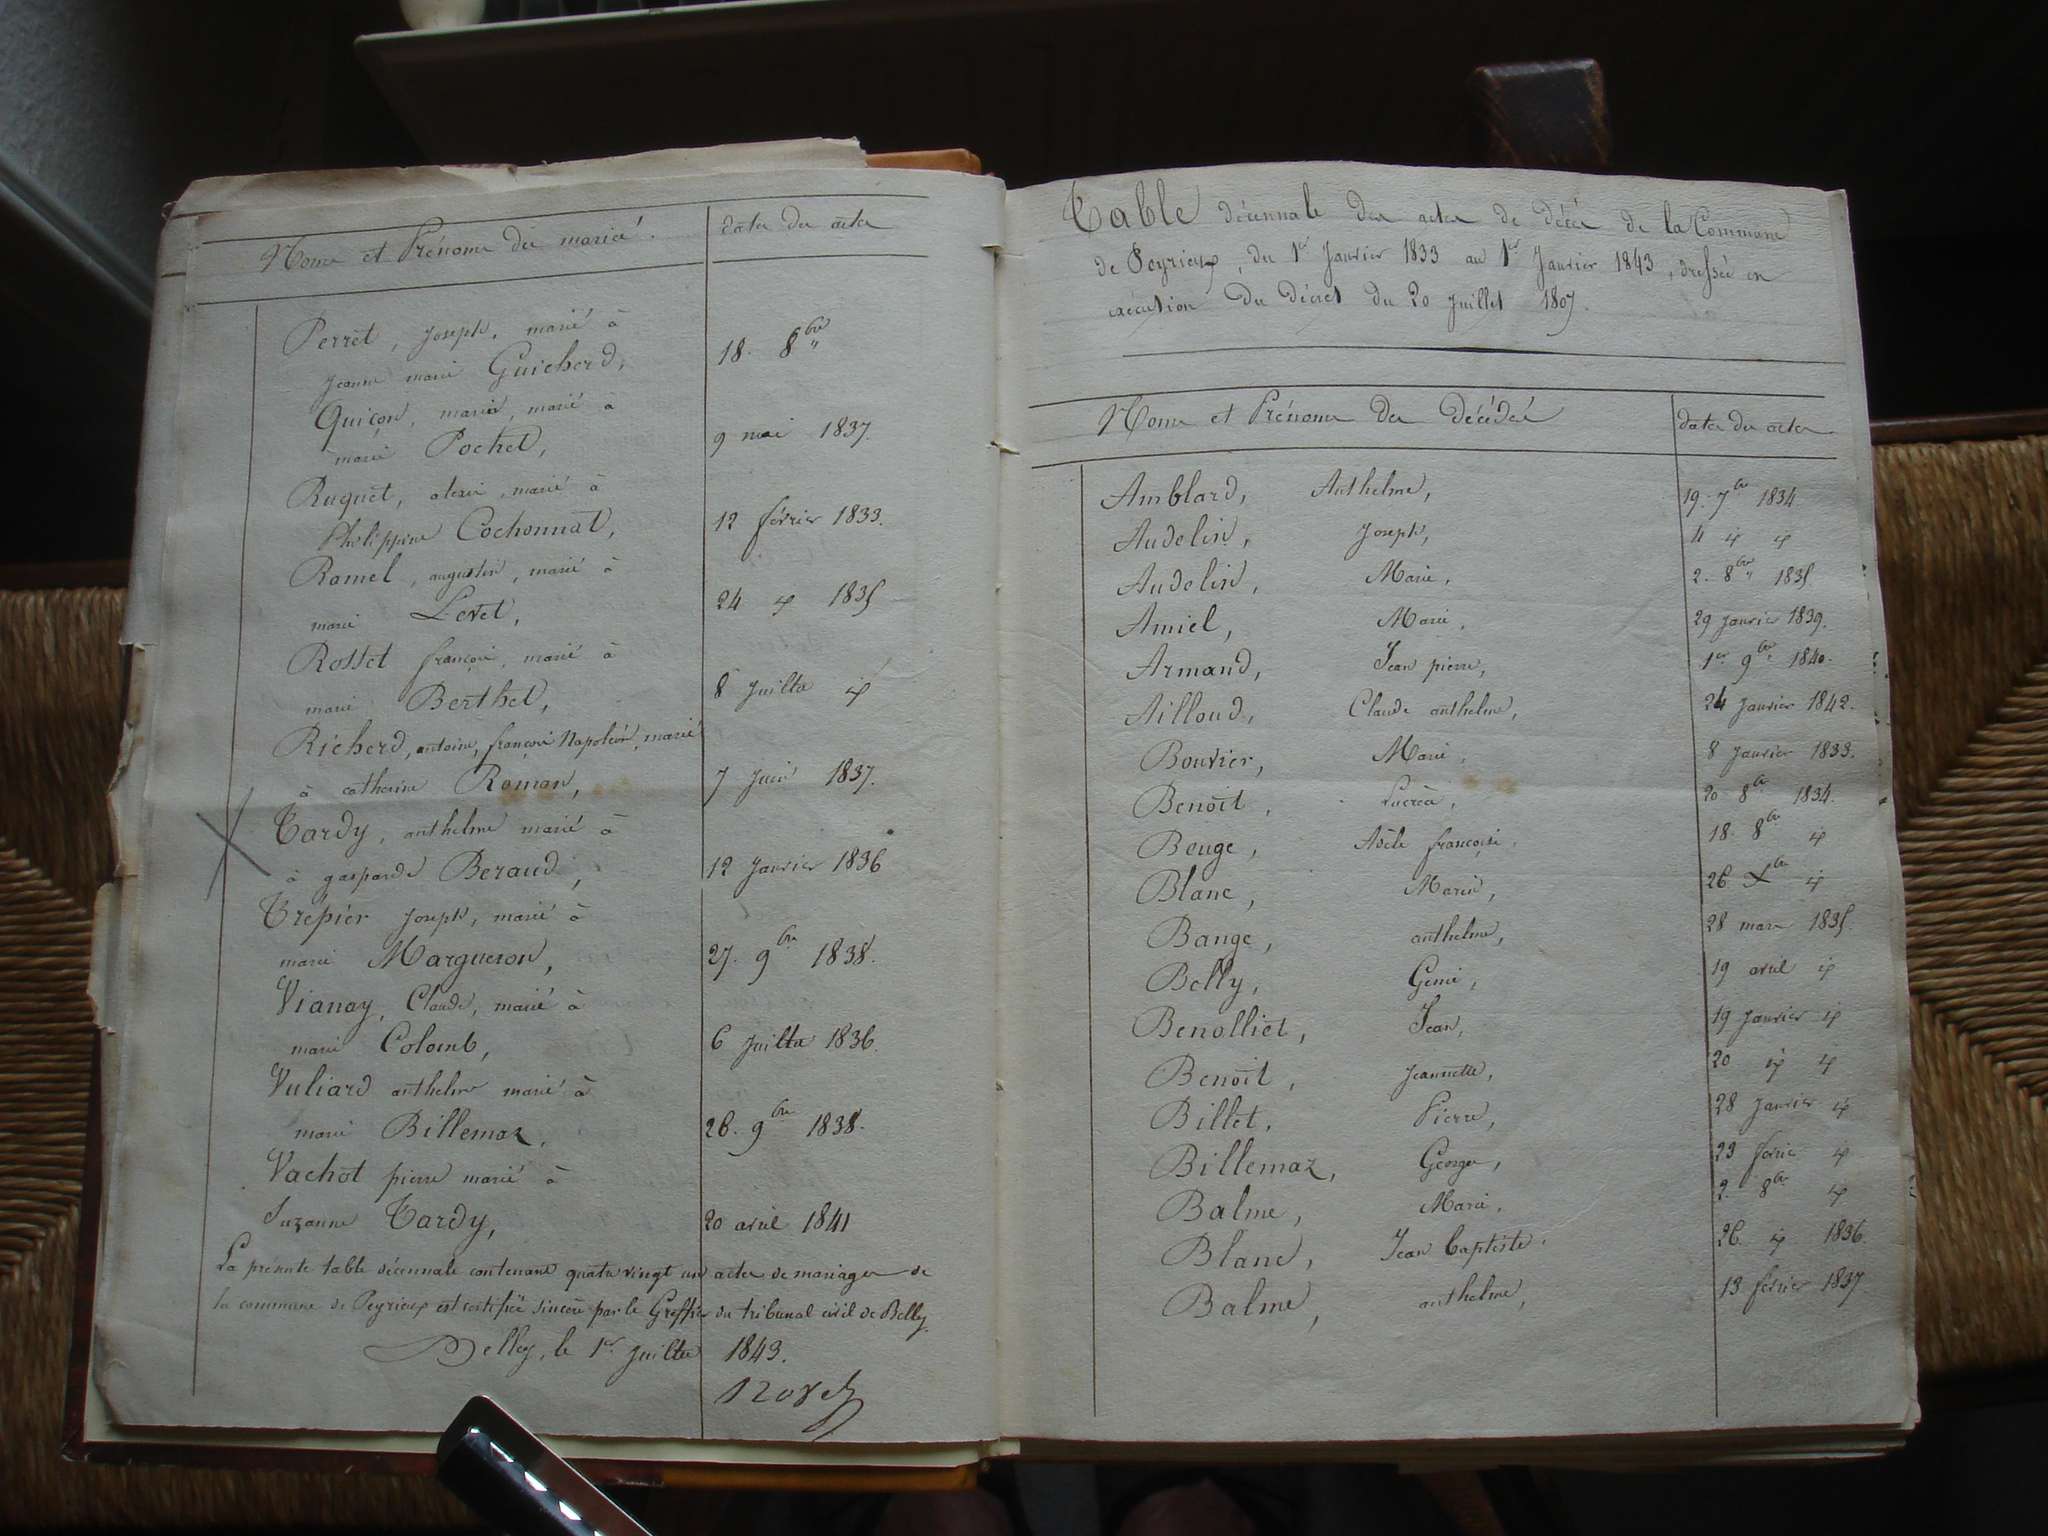 Noms et Prénoms des mariés. dates des actes
Perret, Joseph, marié à
Jeanne marie Guicherd, 18. 8bre "
Quiçon, marin, marié à
marie Pochet, 9 mai 1837.
Ruguet, alexis, marié à
Philippine Cochonnat, 12 février 1833.
Ramel, augustin, marié à
marie Levet, 24 id 1835
Rosset françois, marié à
marie Berthet, 8 Juillet id
Richerd, antoine, françois Napoléon, marié
à catherine Roman, 7 Juin 1837.
Tardy, anthelme marié à
à gasparde Beraud, 12 Janvier 1836
Trépier Joseph, marié à
marie Margueron, 27. 9bre 1838.
Vianay, Claude, marié à
marie Colomb, 6 Juillet 1836.
Vuliard anthelme marié à
marie Billemaz, 26. 9bre 1838.
Vachot pierre marié à
Suzanne Tardy, 20 avril 1841
La présente table décennale contenant quatre vingt un actes de mariages de
la commune de Peyrieux est certifiée sincère par le Greffier du tribunal civil de Belley.
Belley, le 1er Juillet 1843.
Table décennale des actes de décès de la Commune
de Peyrieux, du 1er Janvier 1833 au 1er Janvier 1843, dressée en
exécution du décret du 20 Juillet 1807.
Noms et Prénoms des décédés dates des actes
Amblard, Anthelme, 19. 7bre 1834
Audelin, Joseph, 4 id id
Audelin, Marie, 2. 8bre 1835
Amiel, Marie, 29 Janvier 1839.
Armand, Jean pierre, 1er 9bre 1840.
Ailloud, Claude anthelme, 24 Janvier 1842.
Bouvier, Marie, 8 Janvier 1833.
Benoît, Lucrèce, 20 8bre 1834.
Beuge, Adèle françoise, 18. 8bre id
Blanc, Marin, 26 Xbre id
Bange, anthelme, 28 mars 1835.
Belly, Genie, 19 avril id
Benolliet, Jean, 19 Janvier id
Benoît, Jeannette, 20 id id
Billet, Pierre, 28 Janvier id
Billemaz, Georges, 23 février id
Balme, Marie, 2. 8bre id
Blanc, Jean baptiste, 26. id 1836
Balme, anthelme, 13 février 1837